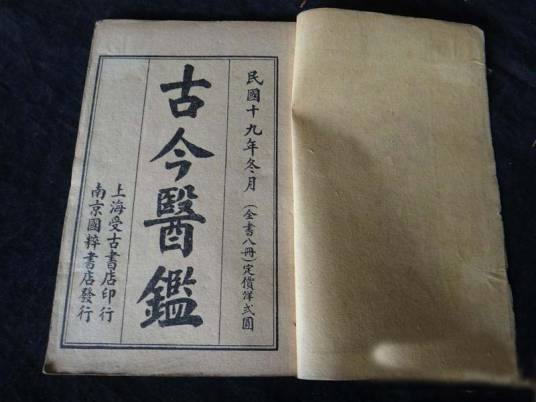 民國十九年冬月（全書八冊）定價洋弍圓
古今醫鑑
上海受古書店印行
南京國粹書店發行